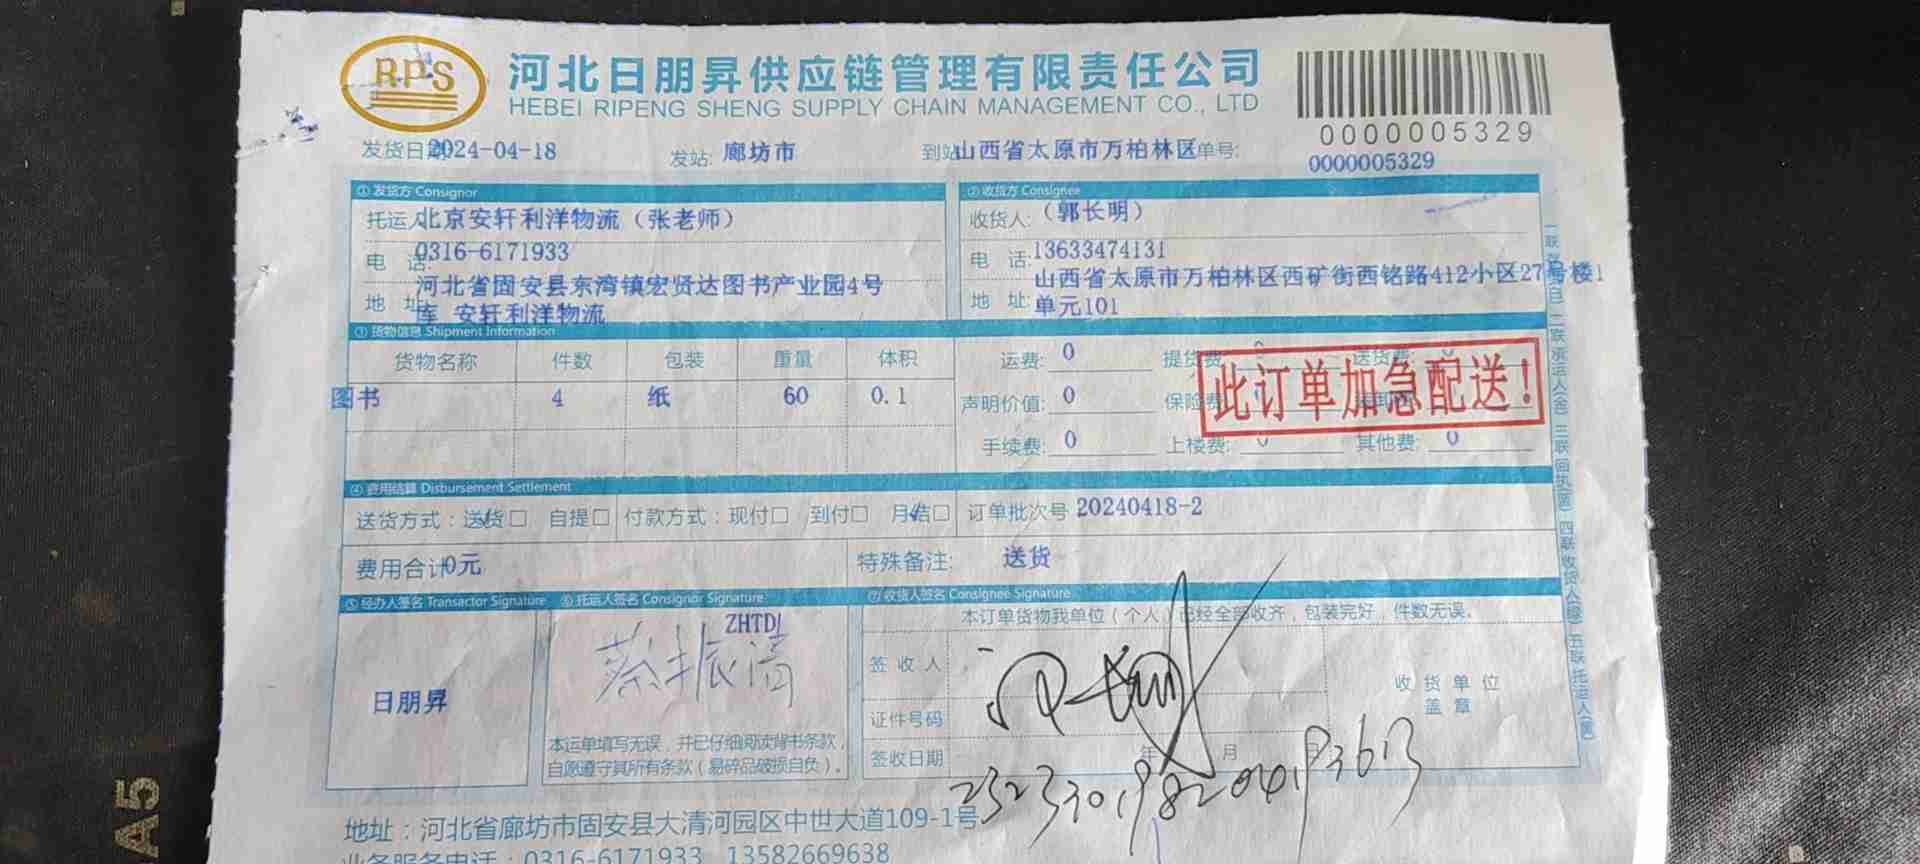 RPS
河北日朋昇供应链管理有限责任公司
HEBEI RIPENG SHENG SUPPLY CHAIN MANAGEMENT CO., LTD
0000005329
发货日期2024-04-18 发站: 廊坊市 到站山西省太原市万柏林区单号: 0000005329
①发货方 Consignor
托运人北京安轩利洋物流（张老师）
电 话:0316-6171933
地 址 河北省固安县东湾镇宏贤达图书产业园4号
库 安轩利洋物流
②收货方 Consignee
收货人:（郭长明）
电 话:13633474131
地 址: 山西省太原市万柏林区西矿街西铭路412小区27号楼1
单元101
③货物信息 Shipment Information
货物名称 件数 包装 重量 体积
图书 4 纸 60 0.1
运费: 0 提货费: 送货费:
声明价值: 0 保险费
手续费: 0 上楼费: 0 其他费: 0
此订单加急配送！
④费用结算 Disbursement Settlement
送货方式：送货□ 自提□ 付款方式：现付□ 到付□ 月结□ 订单批次号 20240418-2
费用合计0元 特殊备注: 送货
⑤经办人签名 Transactor Signature
日朋昇
⑥托运人签名 Consignor Signature
ZHTDJ
蔡振清
本运单填写无误，并已仔细阅读背书条款，
自愿遵守其所有条款（易碎品破损自负）。
⑦收货人签名 Consignee Signature
本订单货物我单位（个人）已经全部收齐，包装完好，件数无误。
签收人
证件号码
签收日期 年 月
收货单位
盖章
地址：河北省廊坊市固安县大清河园区中世大道109-1号
业务服务电话：0316-6171933 13582669638
A5